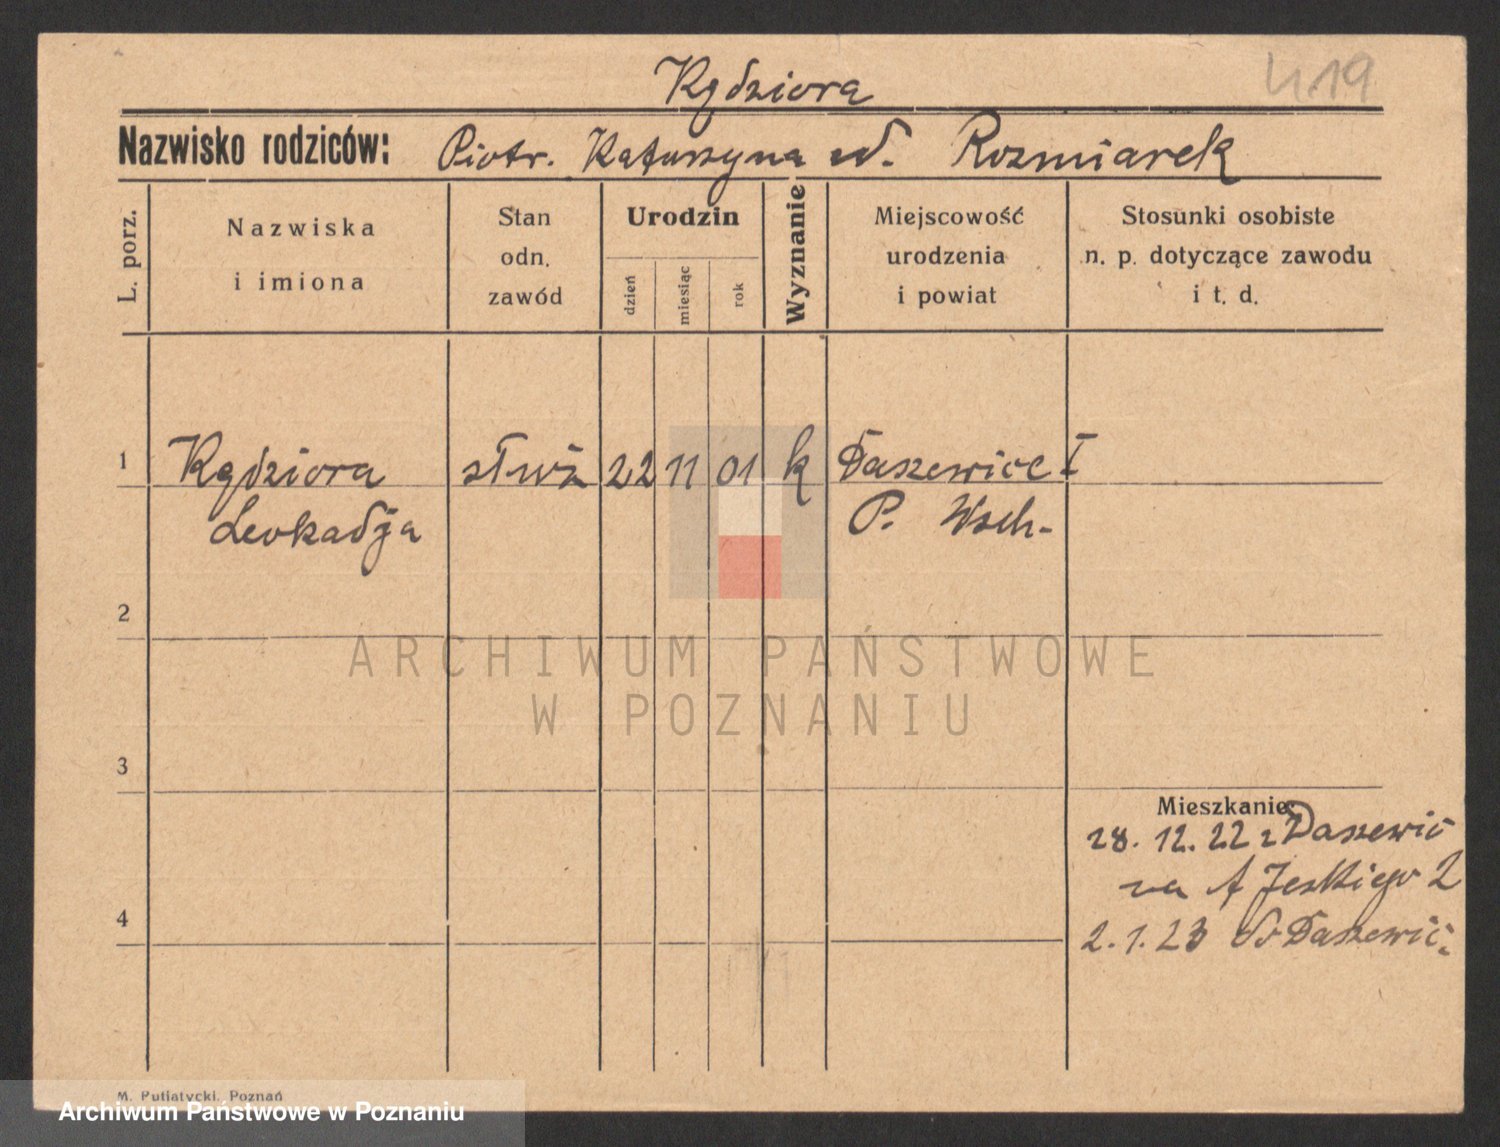 4.19
Kędziora
Nazwisko rodziców: Piotr. Katarzyna zd. Rozmiarek
L. porz.
Nazwiska
i imiona
Stan
odn.
zawód
Urodzin
dzień
miesiąc
rok
Wyznanie
Miejscowość
urodzenia
i powiat
Stosunki osobiste
n. p. dotyczące zawodu
i t. d.
1 Kędziora służ 22 11 01 k Daszewice I
Leokadja P. Wsch.
2
ARCHIWUM PAŃSTWOWE
W POZNANIU
3
Mieszkanie:
28. 12. 22 z Daszewic
na Jeskiego 2
4
2. 1. 23 do Daszewic.
M. Putiatycki. Poznań
Archiwum Państwowe w Poznaniu